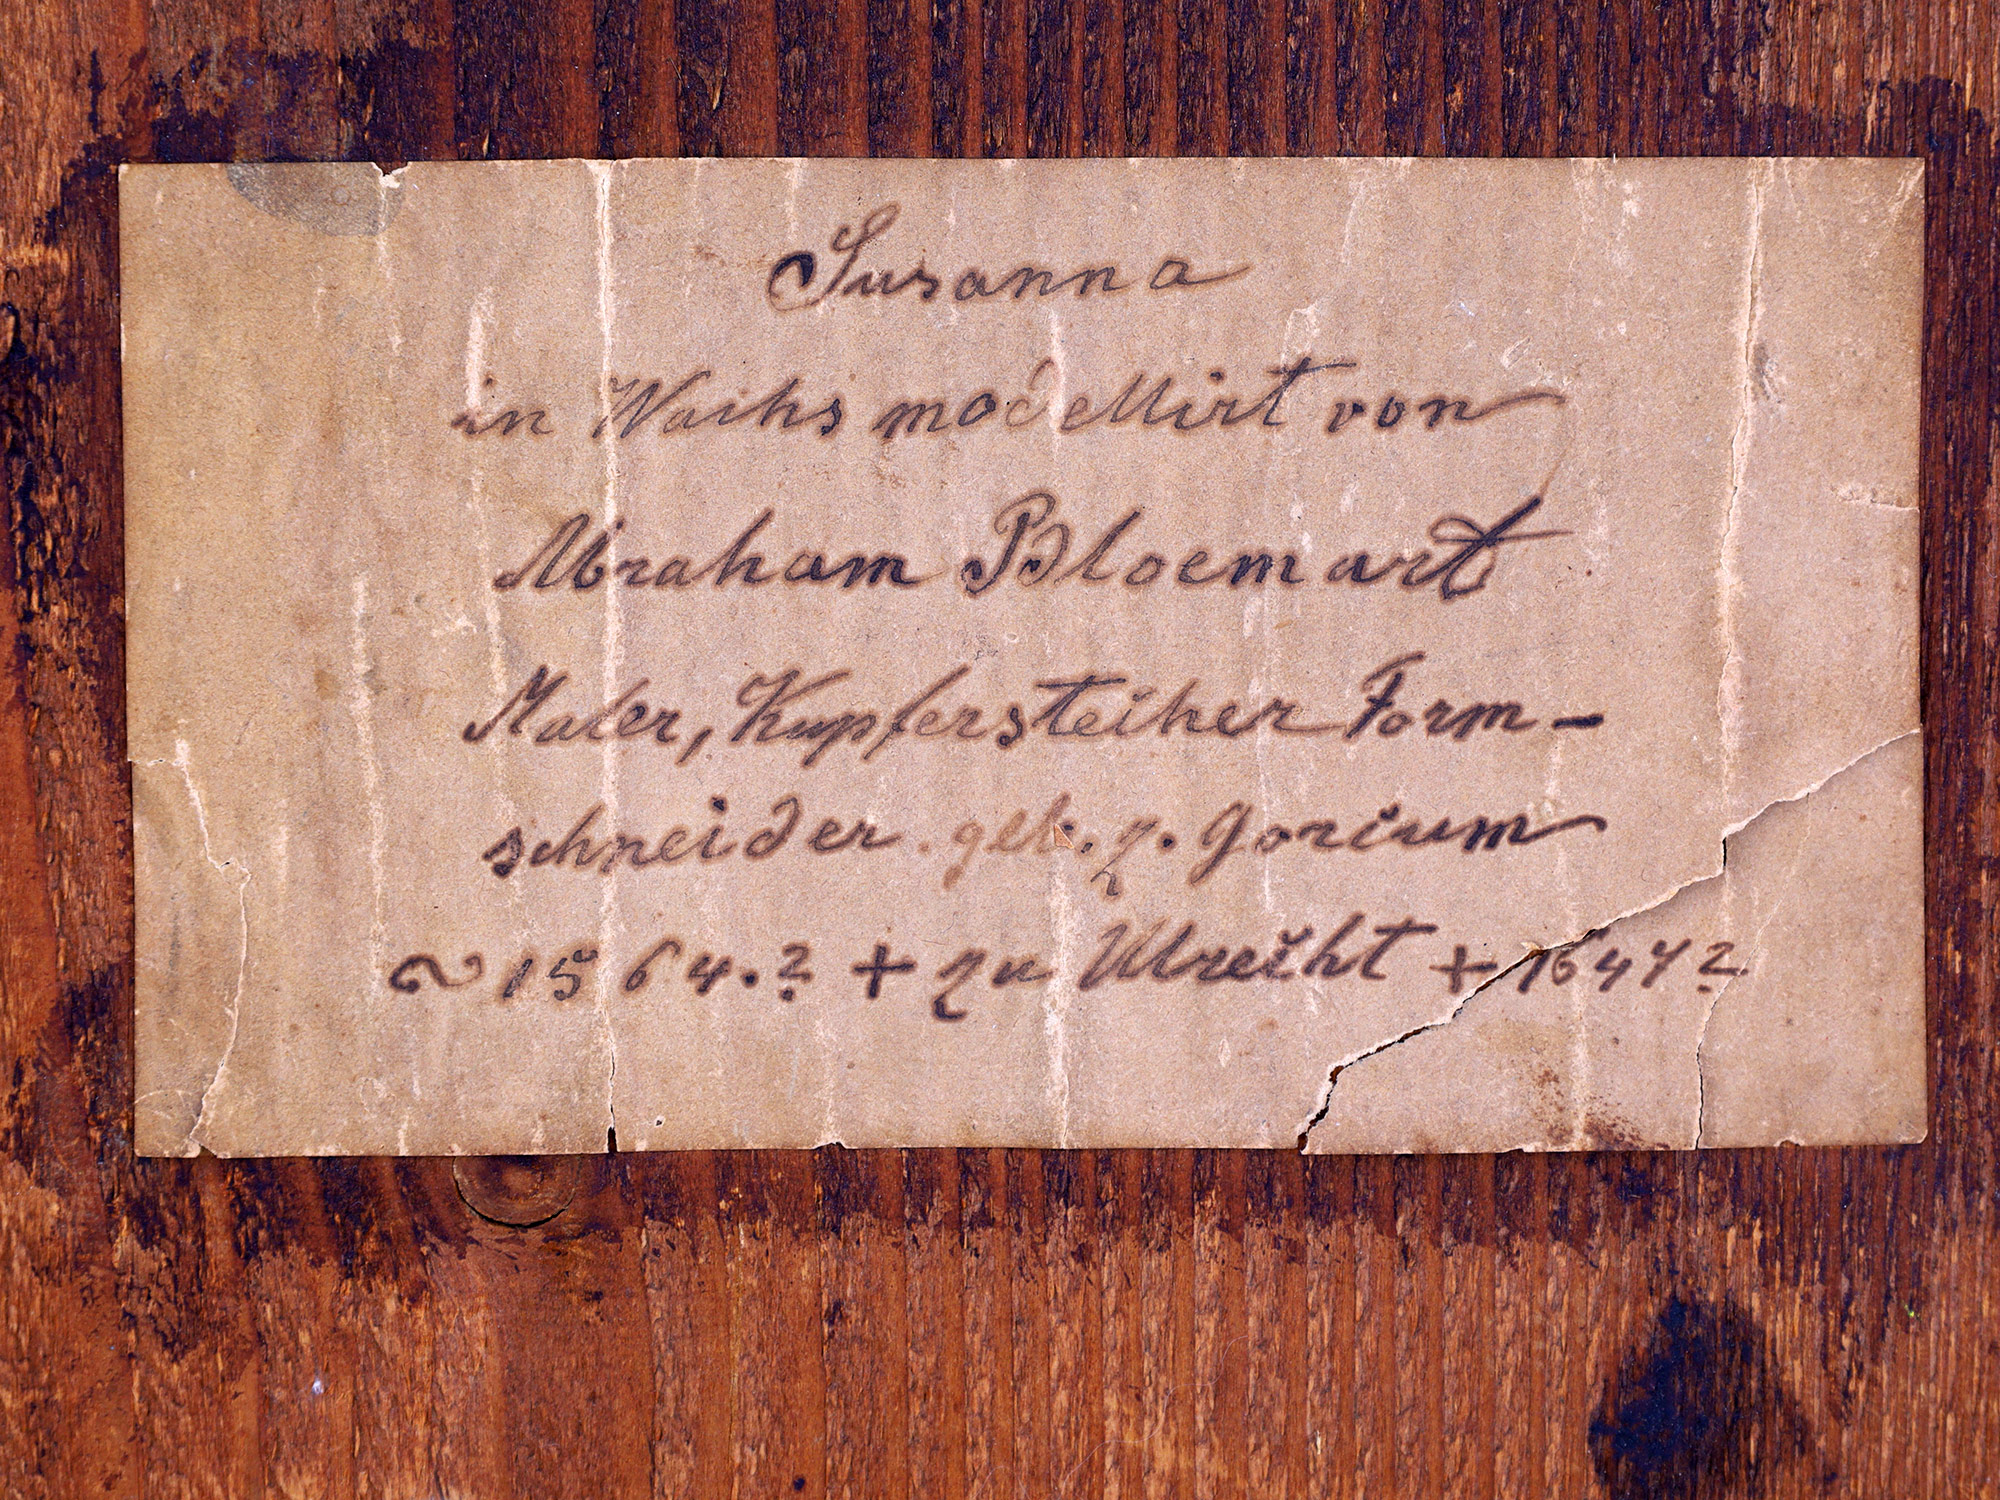 Susanna
in Wachs modellirt von
Abraham Bloemart
Maler, Kupfersteiher Form-
schneider. geb. z. Goricum
~ 1564.? + zu Utrecht + 1647?